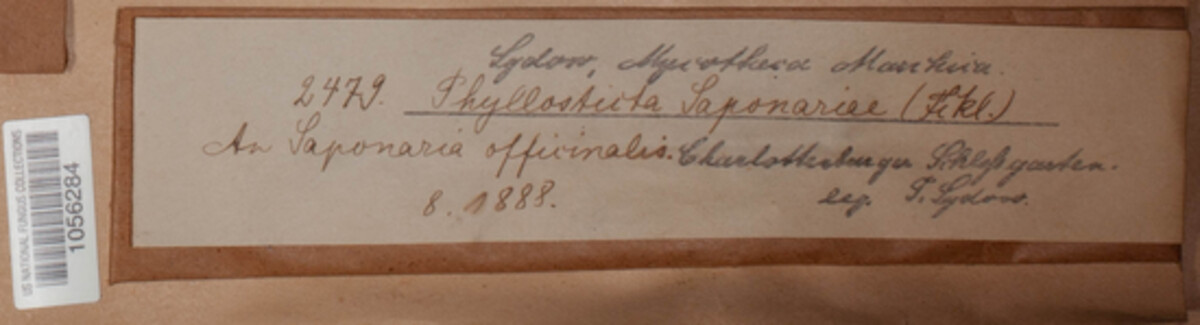 Sydow, Mycotheca Marchica.
2479. Phyllosticta Saponariae (Fckl.)
An Saponaria officinalis. Charlottenburger Schloßgarten.
8. 1888. leg. P. Sydow.
US NATIONAL FUNGUS COLLECTIONS
1056284